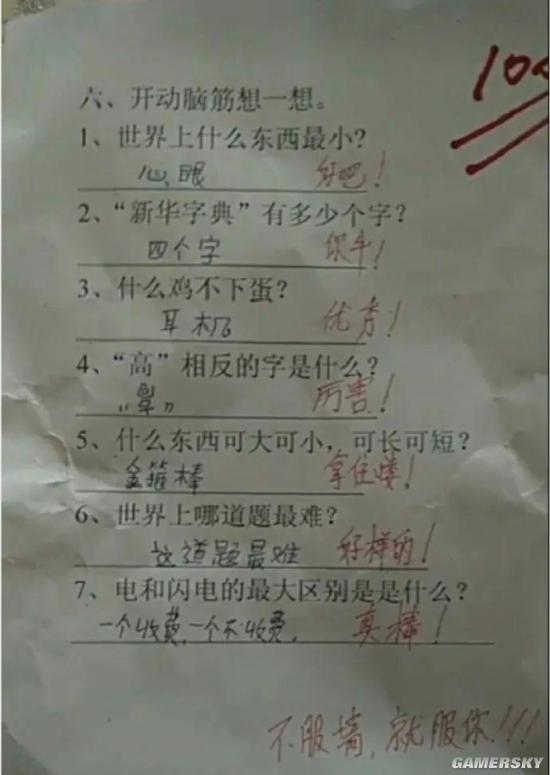 10
六、开动脑筋想一想。
1、世界上什么东西最小?
心眼 好吧!
2、“新华字典”有多少个字?
四个字 你牛!
3、什么鸡不下蛋?
耳机 优秀!
4、“高”相反的字是什么?
“ ” 厉害!
5、什么东西可大可小,可长可短?
金箍棒 拿住喽!
6、世界上哪道题最难?
这道题最难 好样的!
7、电和闪电的最大区别是是什么?
一个收费,一个不收费, 真棒!
不服墙,就服你!!!
GAMERSKY